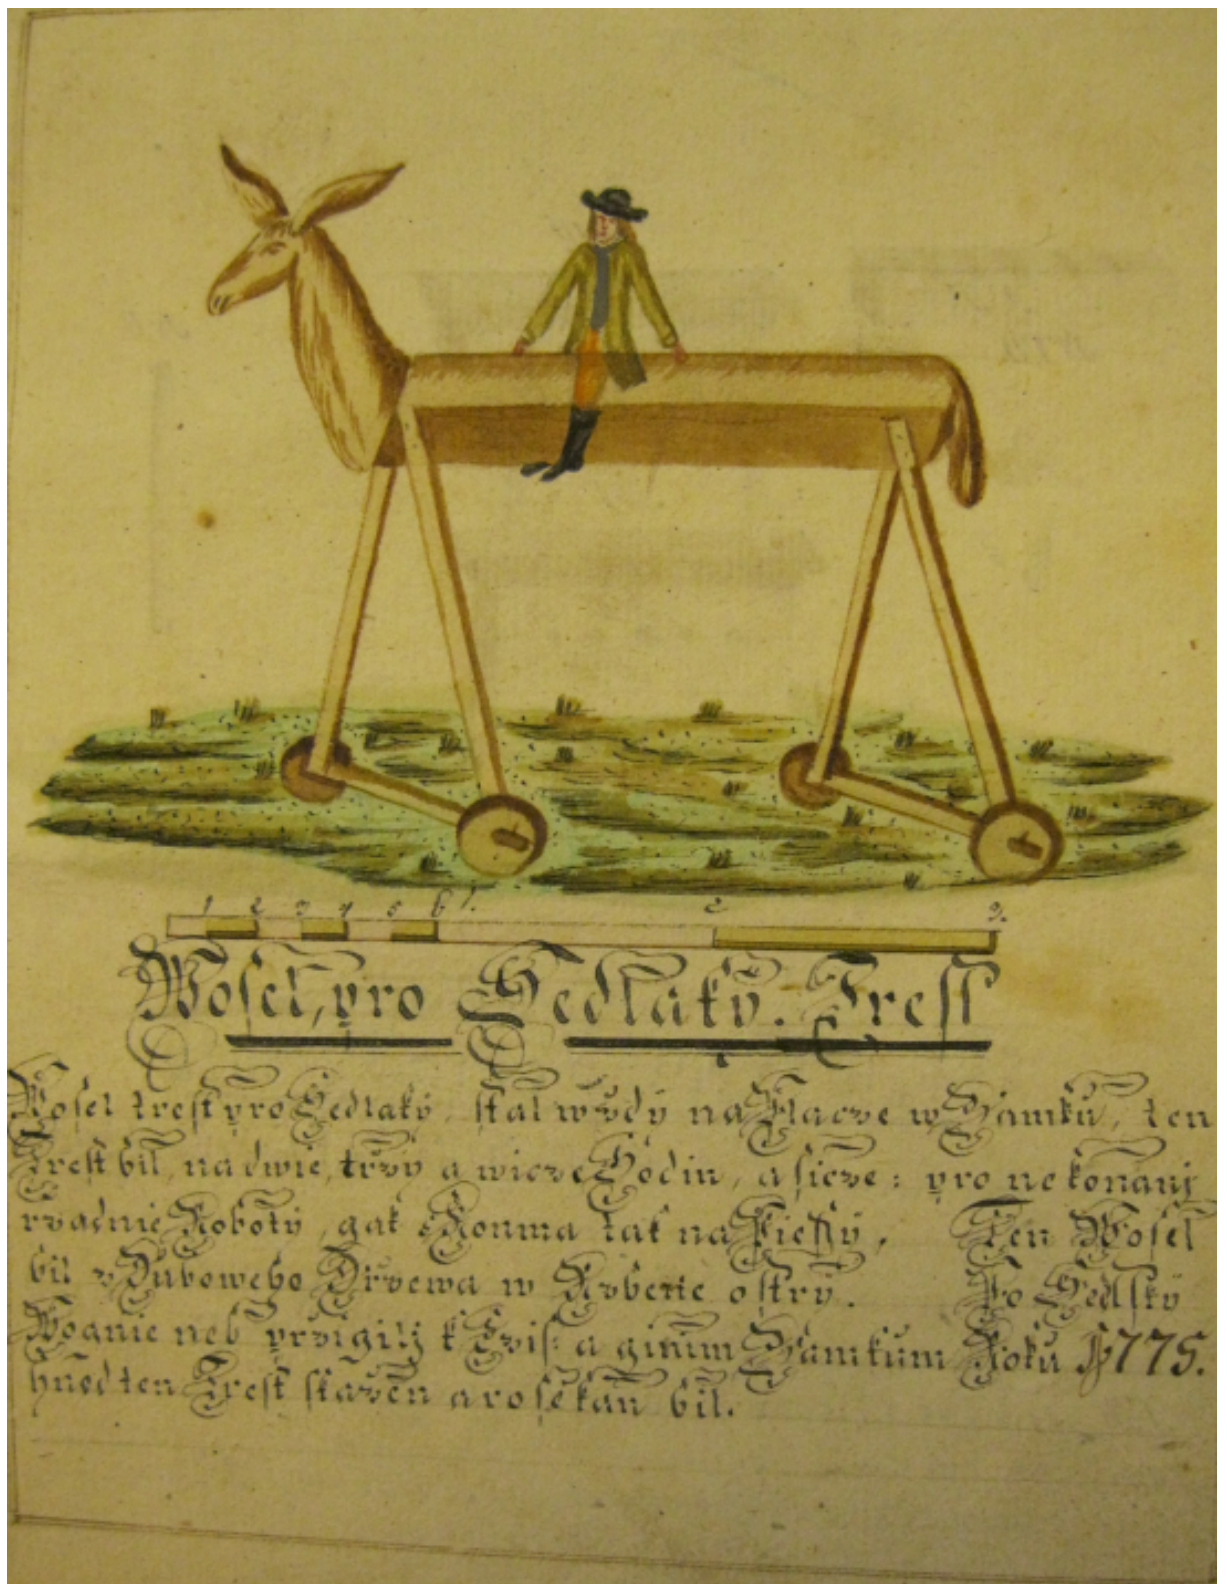 1 2 3 4 5 6 1. 2 3.
Wosel, pro Sedlaký. Trest
Wosel trest pro Sedlaký stal wždý na Placze w Zámku, ten
Trest bil, na dwie, trzý a wicze Hodin, a sicze: pro nekonanj
rzadnie Robotý, gak Konma tak na Piessý. Ten Wosel
bil z Duboweho Drzewa w Hrbetie ostrý. Po Sedlský
Wognie neb przigili k a ginim Zamkum Roku 1775.
hned ten Trest skazen a rosekan bil.